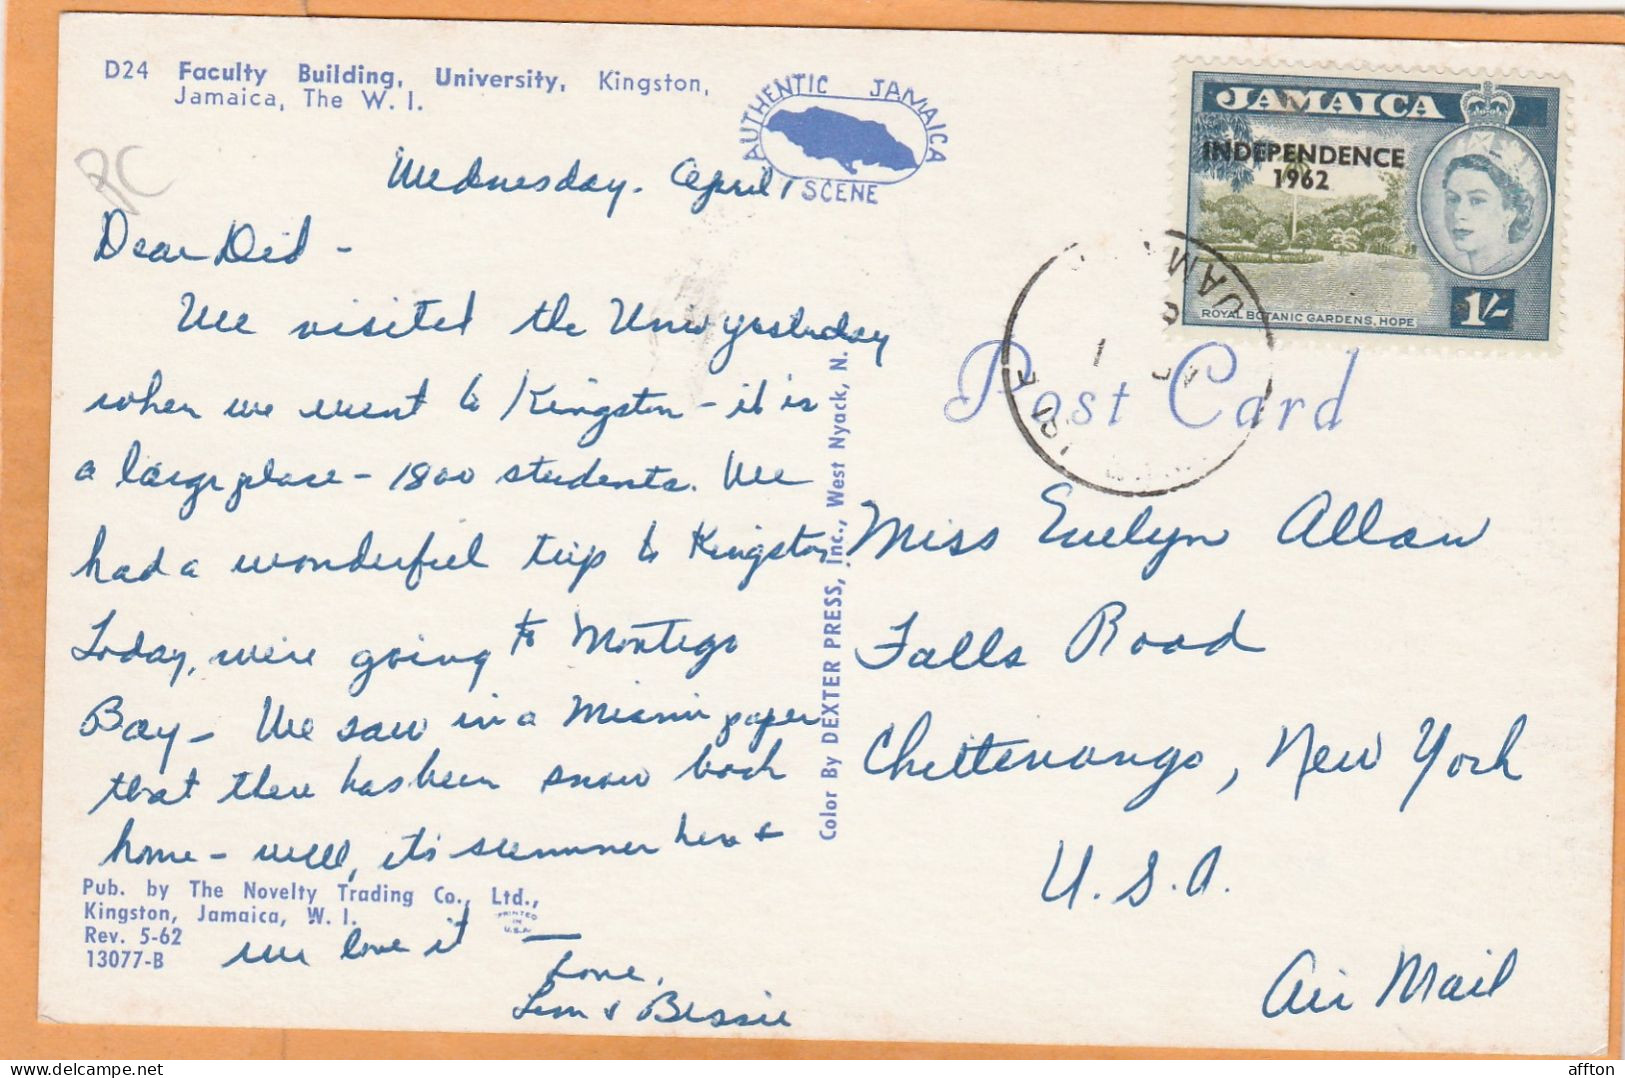 D24 Faculty Building, University, Kingston,
Jamaica, The W. I.
AUTHENTIC JAMAICA
SCENE
JAMAICA
INDEPENDENCE
1962
ROYAL BOTANIC GARDENS, HOPE
1/-
Wednesday. April 1
Dear Did -
We visited the Univ yesterday
when we went to Kingston - it is
a large place - 1800 students. We
had a wonderful trip to Kingston
Today, we're going to Montego
Bay - We saw in a Miami paper
that there has been snow back
home - well, it's summer here &
we love it —
Love,
Lem & Bessie
Pub. by The Novelty Trading Co., Ltd.,
Kingston, Jamaica, W. I.
Rev. 5-62
13077-B
PRINTED
IN
U.S.A.
Color By DEXTER PRESS, Inc., West Nyack, N.
Post Card
Miss Evelyn Allan
Falls Road
Chittenango, New York
U.S.A.
Air Mail
affton
delcampe.net